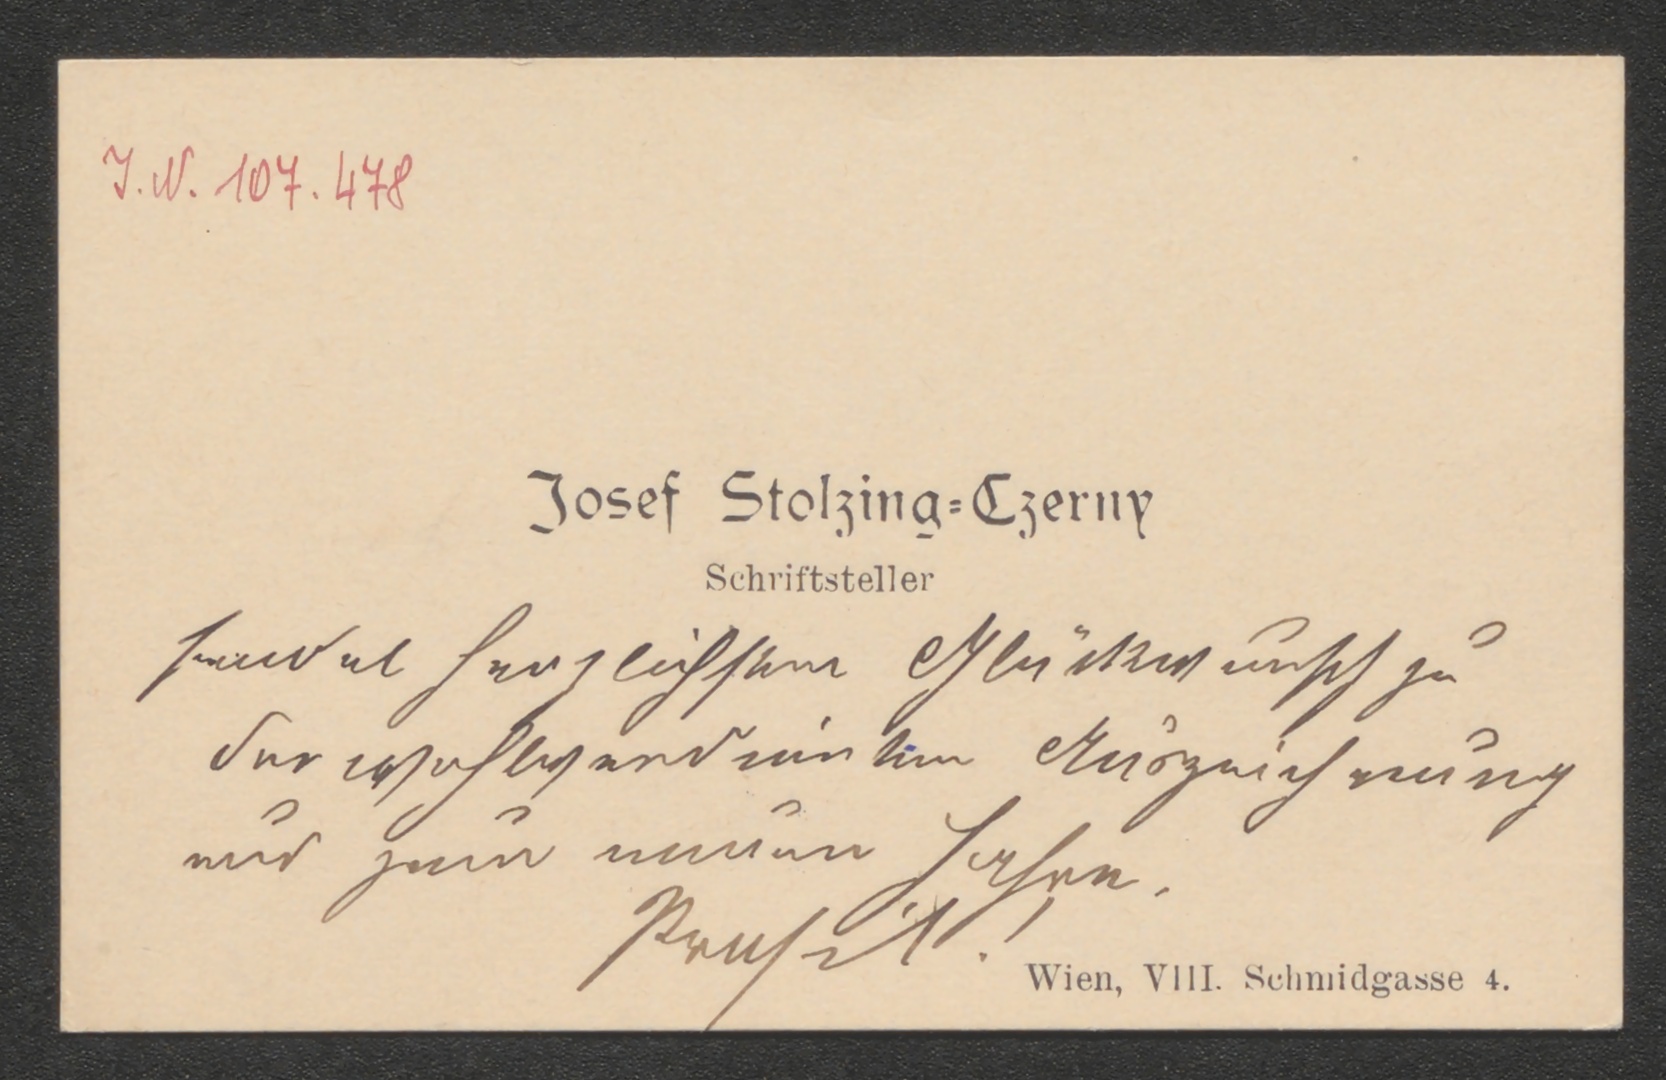 J.N. 107.478
Josef Stolzing=Czerny
Schriftsteller
sendet herzlichsten Glückwunsch zu
der wohlverdienten Auszeichnung
und zum neuen Jahre.
Prosit!
Wien, VIII. Schmidgasse 4.